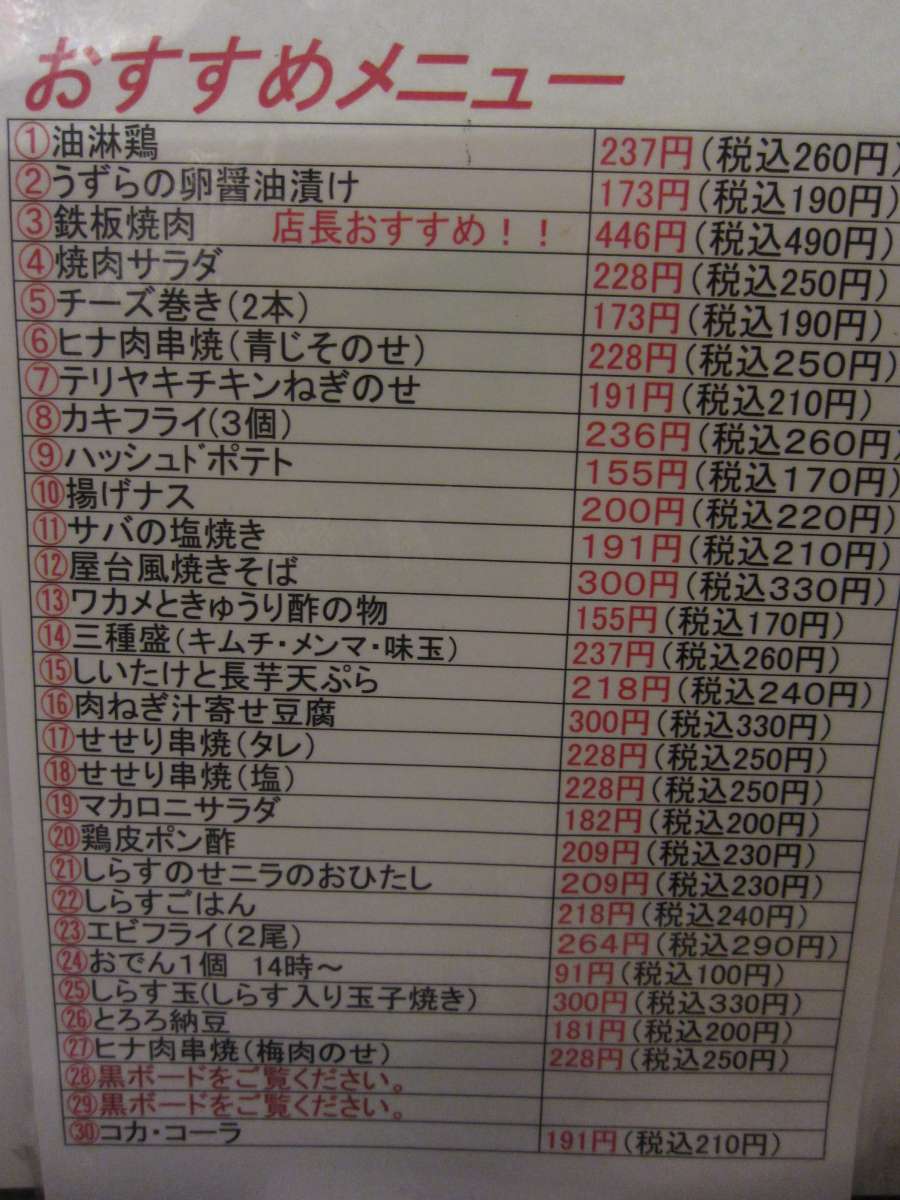 おすすめメニュー
①油淋鶏 237円(税込260円)
②うずらの卵醤油漬け 173円(税込190円)
③鉄板焼肉 店長おすすめ!! 446円(税込490円)
④焼肉サラダ 228円(税込250円)
⑤チーズ巻き(2本) 173円(税込190円)
⑥ヒナ肉串焼(青じそのせ) 228円(税込250円)
⑦テリヤキチキンねぎのせ 191円(税込210円)
⑧カキフライ(3個) 236円(税込260円)
⑨ハッシュドポテト 155円(税込170円)
⑩揚げナス 200円(税込220円)
⑪サバの塩焼き 191円(税込210円)
⑫屋台風焼きそば 300円(税込330円)
⑬ワカメときゅうり酢の物 155円(税込170円)
⑭三種盛(キムチ・メンマ・味玉) 237円(税込260円)
⑮しいたけと長芋天ぷら 218円(税込240円)
⑯肉ねぎ汁寄せ豆腐 300円(税込330円)
⑰せせり串焼(タレ) 228円(税込250円)
⑱せせり串焼(塩) 228円(税込250円)
⑲マカロニサラダ 182円(税込200円)
⑳鶏皮ポン酢 209円(税込230円)
㉑しらすのせニラのおひたし 209円(税込230円)
㉒しらすごはん 218円(税込240円)
㉓エビフライ(2尾) 264円(税込290円)
㉔おでん1個 14時~ 91円(税込100円)
㉕しらす玉(しらす入り玉子焼き) 300円(税込330円)
㉖とろろ納豆 181円(税込200円)
㉗ヒナ肉串焼(梅肉のせ) 228円(税込250円)
㉘黒ボードをご覧ください。
㉙黒ボードをご覧ください。
㉚コカ・コーラ 191円(税込210円)